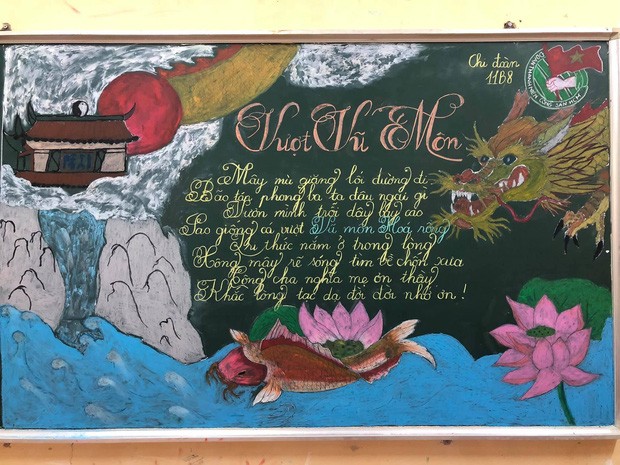 Chi đoàn
11B8
ĐOÀN THANH NIÊN CỘNG SẢN HCM
Vượt Vũ Môn
Mây mù giăng lối đường đi
Bão táp phong ba ta đâu ngại gì
Vươn mình trỗi dậy bay cao
Sao giống cá vượt Vũ môn Hoá rồng
Tri thức nằm ở trong lòng
Xông mây rẽ sóng tìm về chốn xưa
Công cha nghĩa mẹ ơn thầy
Khắc lòng tạc dạ đời đời nhớ ơn !